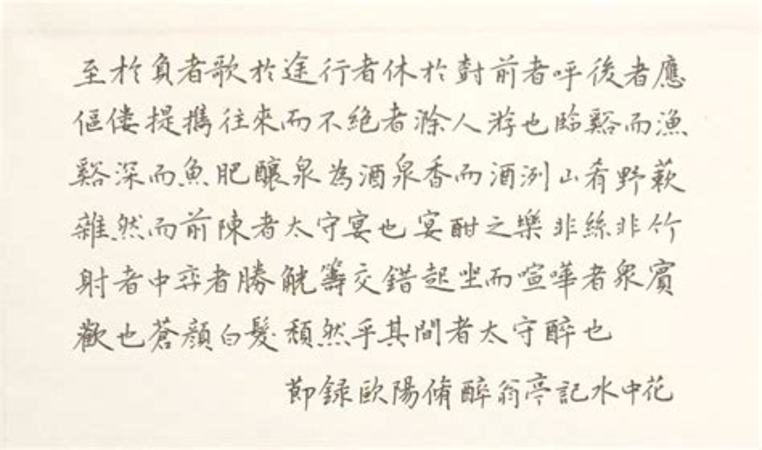 至於負者歌於途行者休於尌前者呼後者應
傴僂提攜往來而不絶者滁人游也臨谿而漁
谿深而魚肥釀泉為酒泉香而酒洌山肴野蔌
雜然而前陳者太守宴也宴酣之樂非絲非竹
射者中弈者勝觥籌交錯起坐而喧嘩者衆賓
歡也蒼顏白髮頹然乎其間者太守醉也
節録歐陽脩醉翁亭記水中花